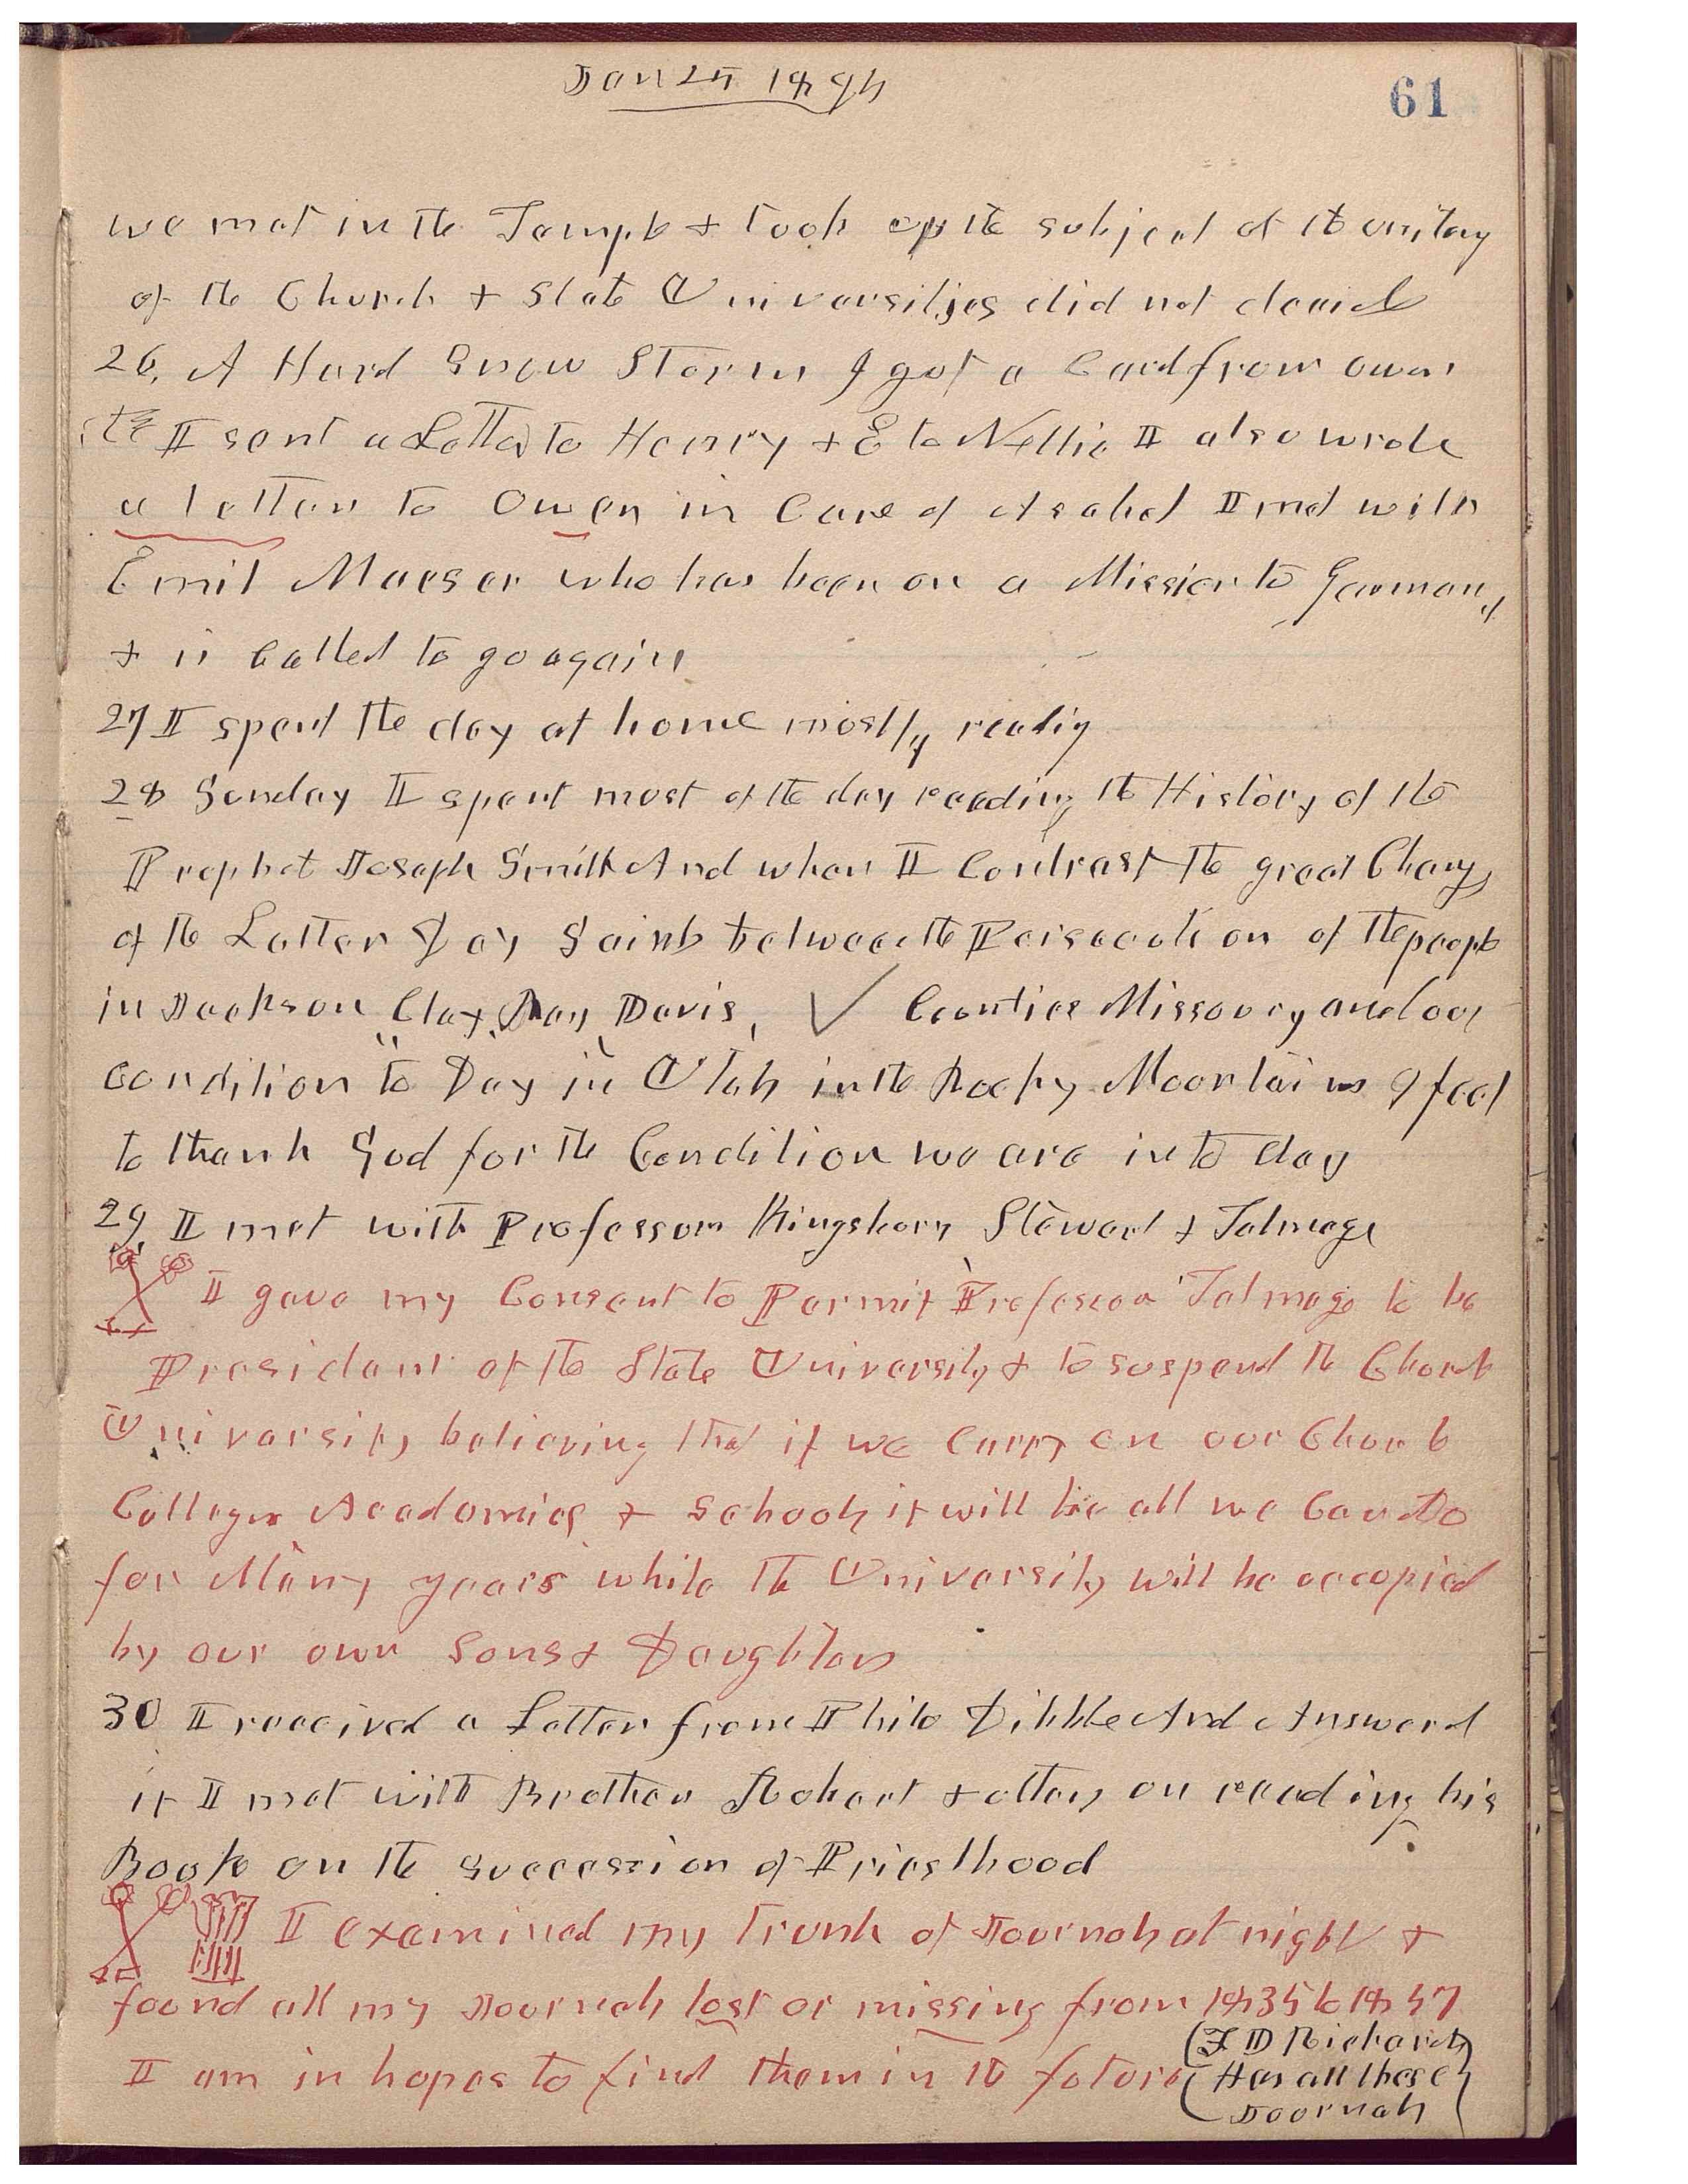 Jan 25 1894
61
we met in the Temple & took up the subject of the uniting
of the Church & State Universities did not decide
26. A Hard Snow Storm I got a Card from Owen
I sent a Letter to Henry & E to Nellie I also wrote
a letter to Owen in Care of Asahel I met with
Emil Maeser who has been on a Mission to Germany
& is Called to go again
27 I spent the day at home mostly readig
28 Sunday I spent most of the day reading the History of the
Prophet Joseph Smith And when I Contrast the great Change
of the Latter Day Saints between the Persecution of the people
in Jackson Clay, Ray, Davis, ✓ Counties Missoury and our
Condition to Day in Utah in the Rocky Mountains I feel
to thank God for the Condition we are in to day
29, I met with Professor Kingsbury Steward & Talmage
I gave my Consent to Permit Professor Talmage to be
President of the State University & to suspend the Church
University believing that if we Carry on our Church
Colleges Academies & Schools it will be all we Can Do
for Many years while the University will be occupied
by our own Sons & Daughters
30 I received a Letter from Philo Dibble And Answerd
it I met with Brother Robert & others on reading his
Book on the Succession of Priesthood
I examined my trunk of Journals at night &
found all my Journals lost or missing from 1835 to 1857
I am in hopes to find them in the future
(F D Richards)
Has all these
Journals